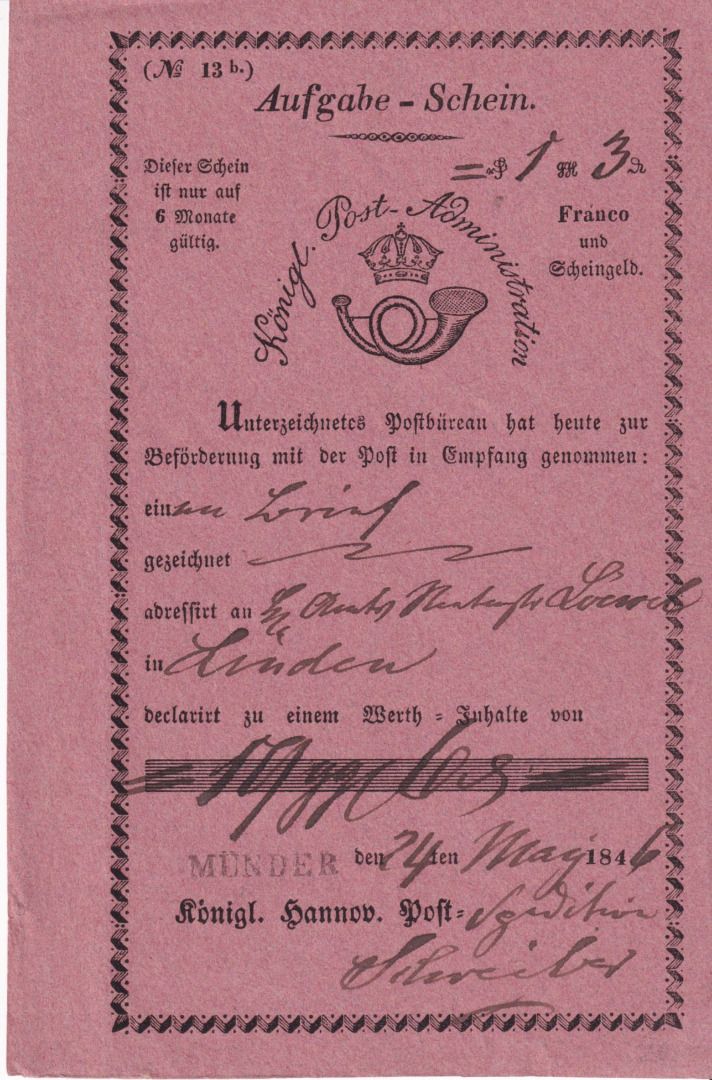 (№ 13 b.)
Aufgabe - Schein.
Dieser Schein
ist nur auf
6 Monate
gültig.
Königl. Post-Administration
1 3
Franco
und
Scheingeld.
Unterzeichnetes Postbüreau hat heute zur
Beförderung mit der Post in Empfang genommen:
einen Brief
gezeichnet
adressirt an
in Linden
declarirt zu einem Werth-Inhalte von
MÜNDER den 24ten May 1846
Königl. Hannov. Post-Spedition
Schreiber